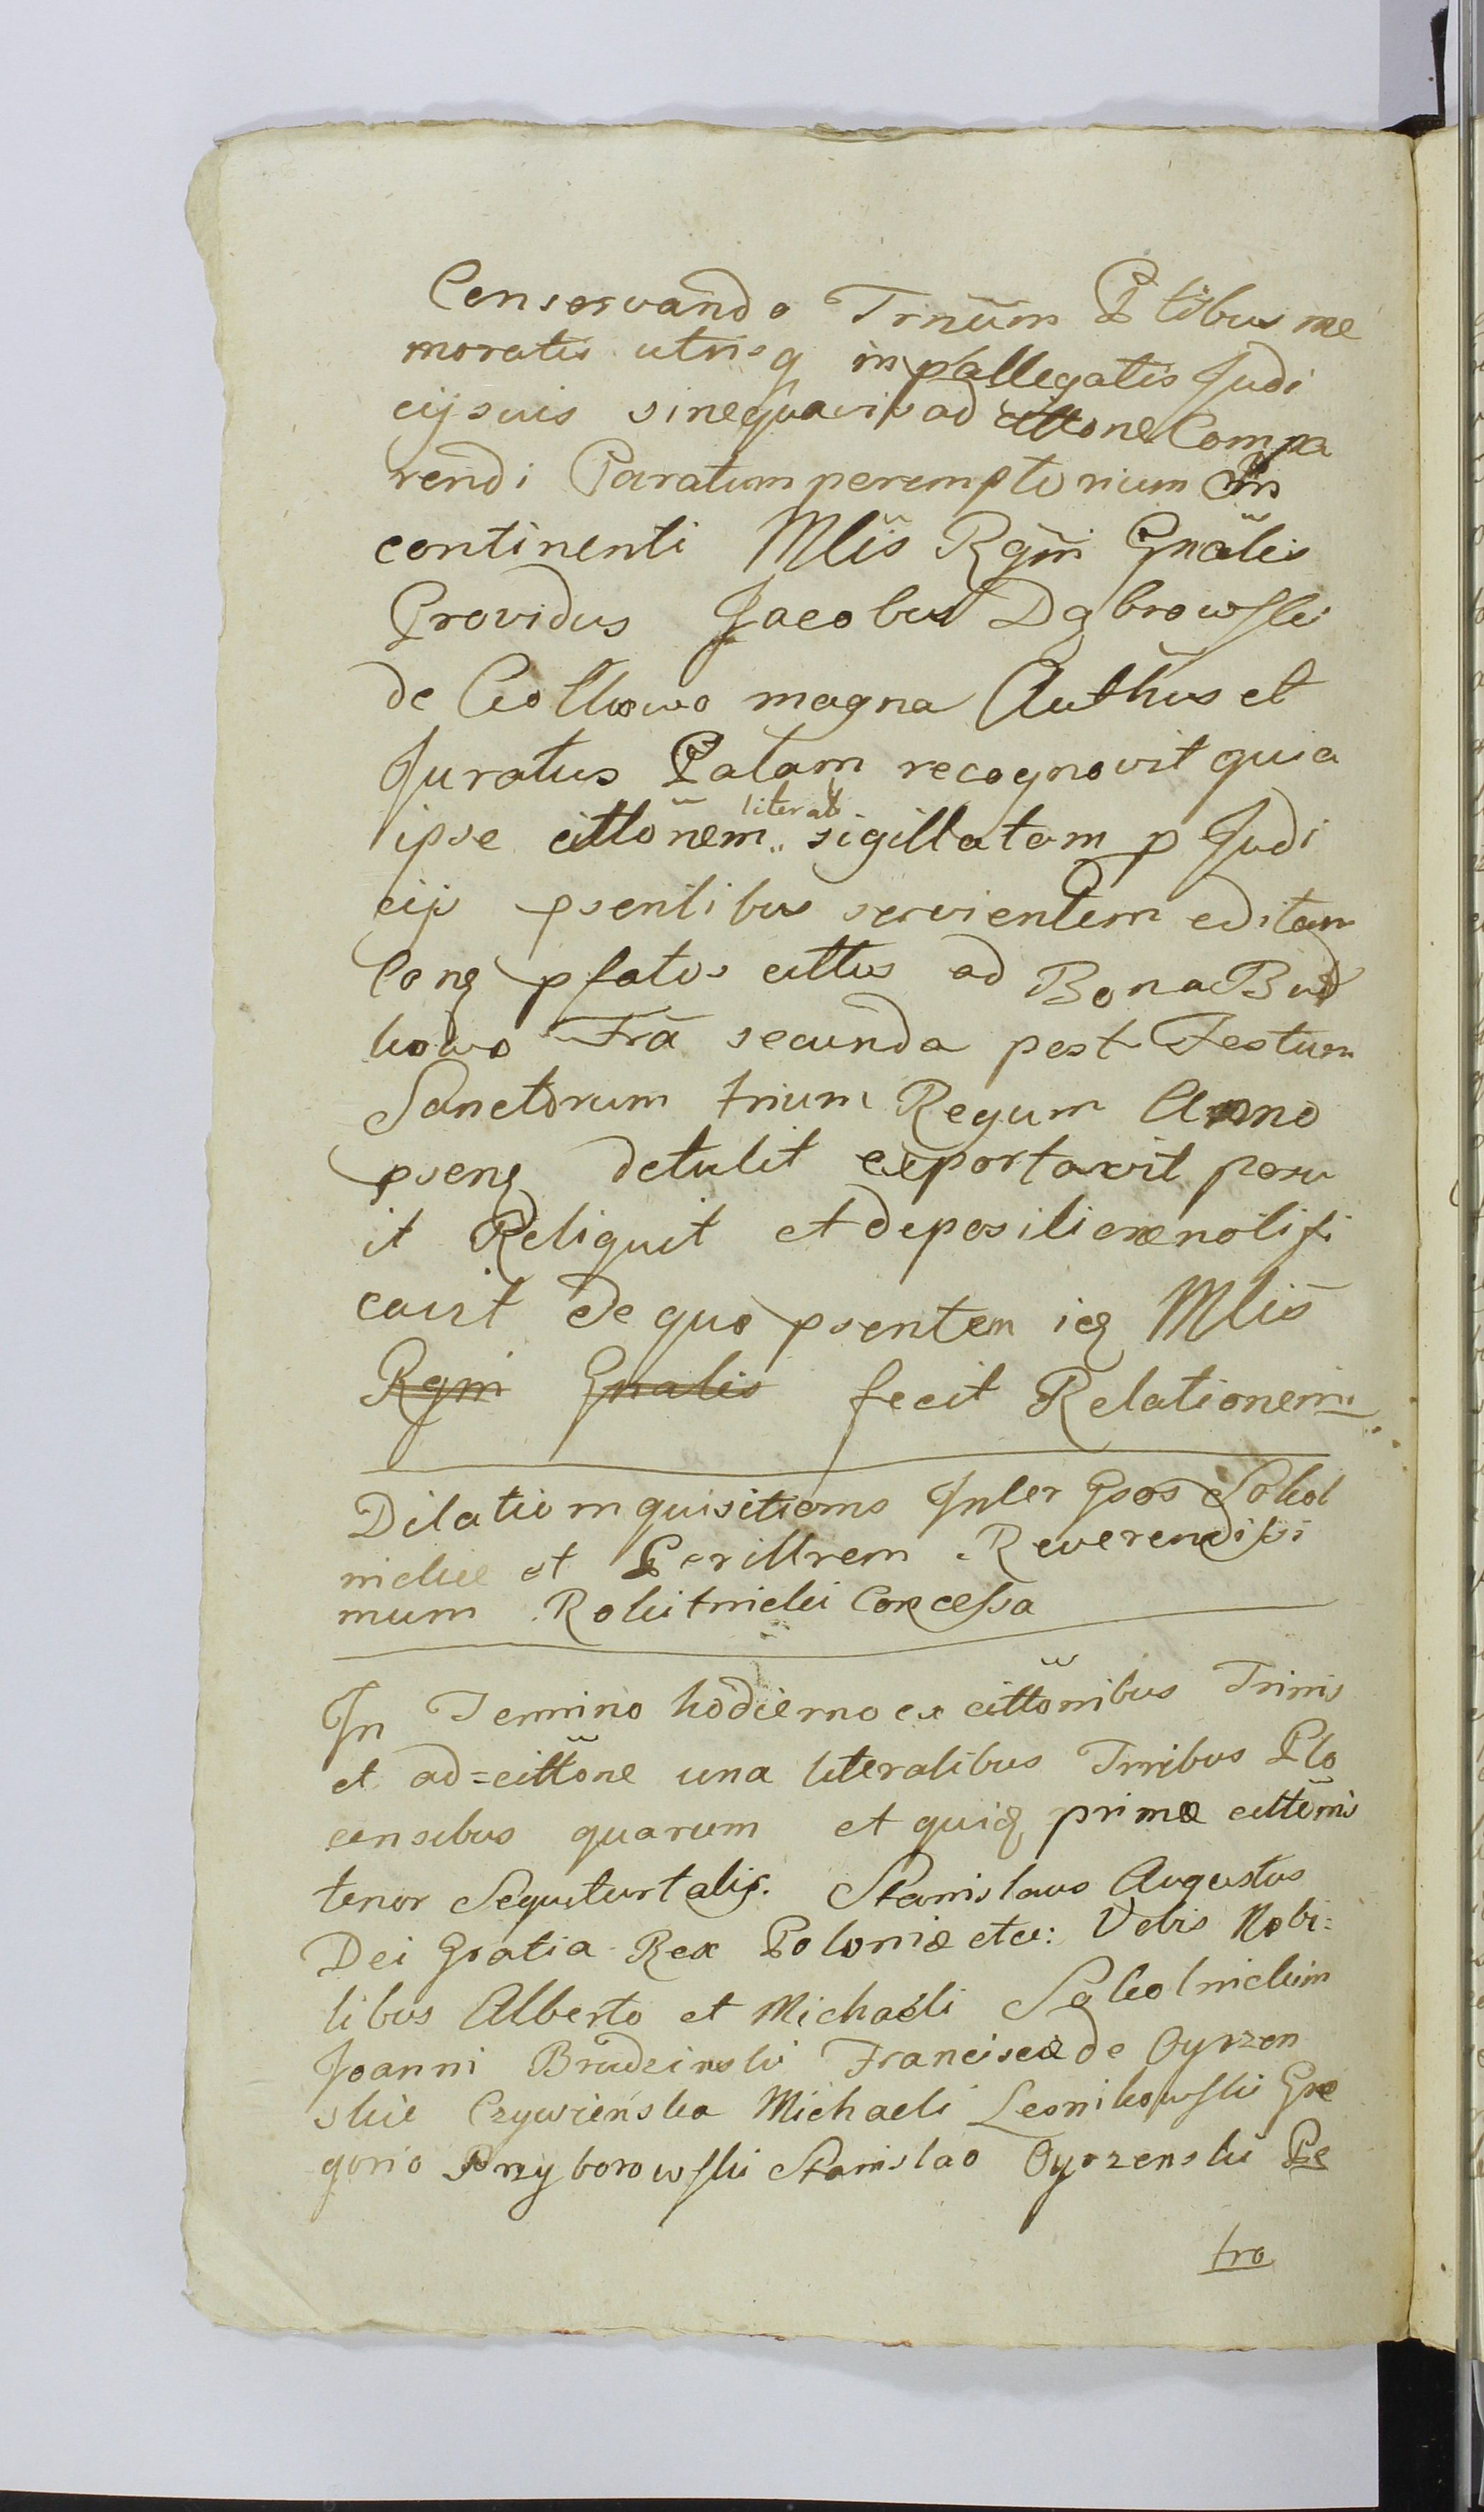 Conservando Trnum Ptibus me
moratis utrisq in pallegatis Judi
cijs suis sine quavis ad cittone Compa
rendi Paratum peremptorium In
continenti Mlis Rgni Gnalis
Providus Jacobus Dąbrowski
de magna Authus et
Juratus Palam recognovit quia
ipse cittonem literal sigillatam p Judi
cijs psentibus servientem editam
Conq pfatos cittus ad Bona Bud
kowo Fra secunda post Festum
Sanctorum trium Regum Anno
pseng detulit exportavit posu
it Reliquit et depositionē notifi
cavit de quo psentem ieg Mlis
Rgni Gnalis fecit Relationem
Dilatio inquisitionis Inter Gsos Sokol
nickie et Perilltrem Reverendissi
mum Rokitnicki Concessa
In Termino hodierno ex cittonibus Trinis
et ad=cittone una literalibus Tnribus Plo
censibus quarum et quidę primæ cittonis
tenor Sequitur talis. Stanislaus Augustus
Dei Gratia Rex Poloniæ etc: Vobis Nobi=
libus Alberto et Michaeli Sokolnickim
Joanni Brudzinski Franciscæ de Oyrzen
skie Czywieńska Michaeli Leonikowski Gre
gorio Przyborowski Stanislao Oyrzenski Pe
tro